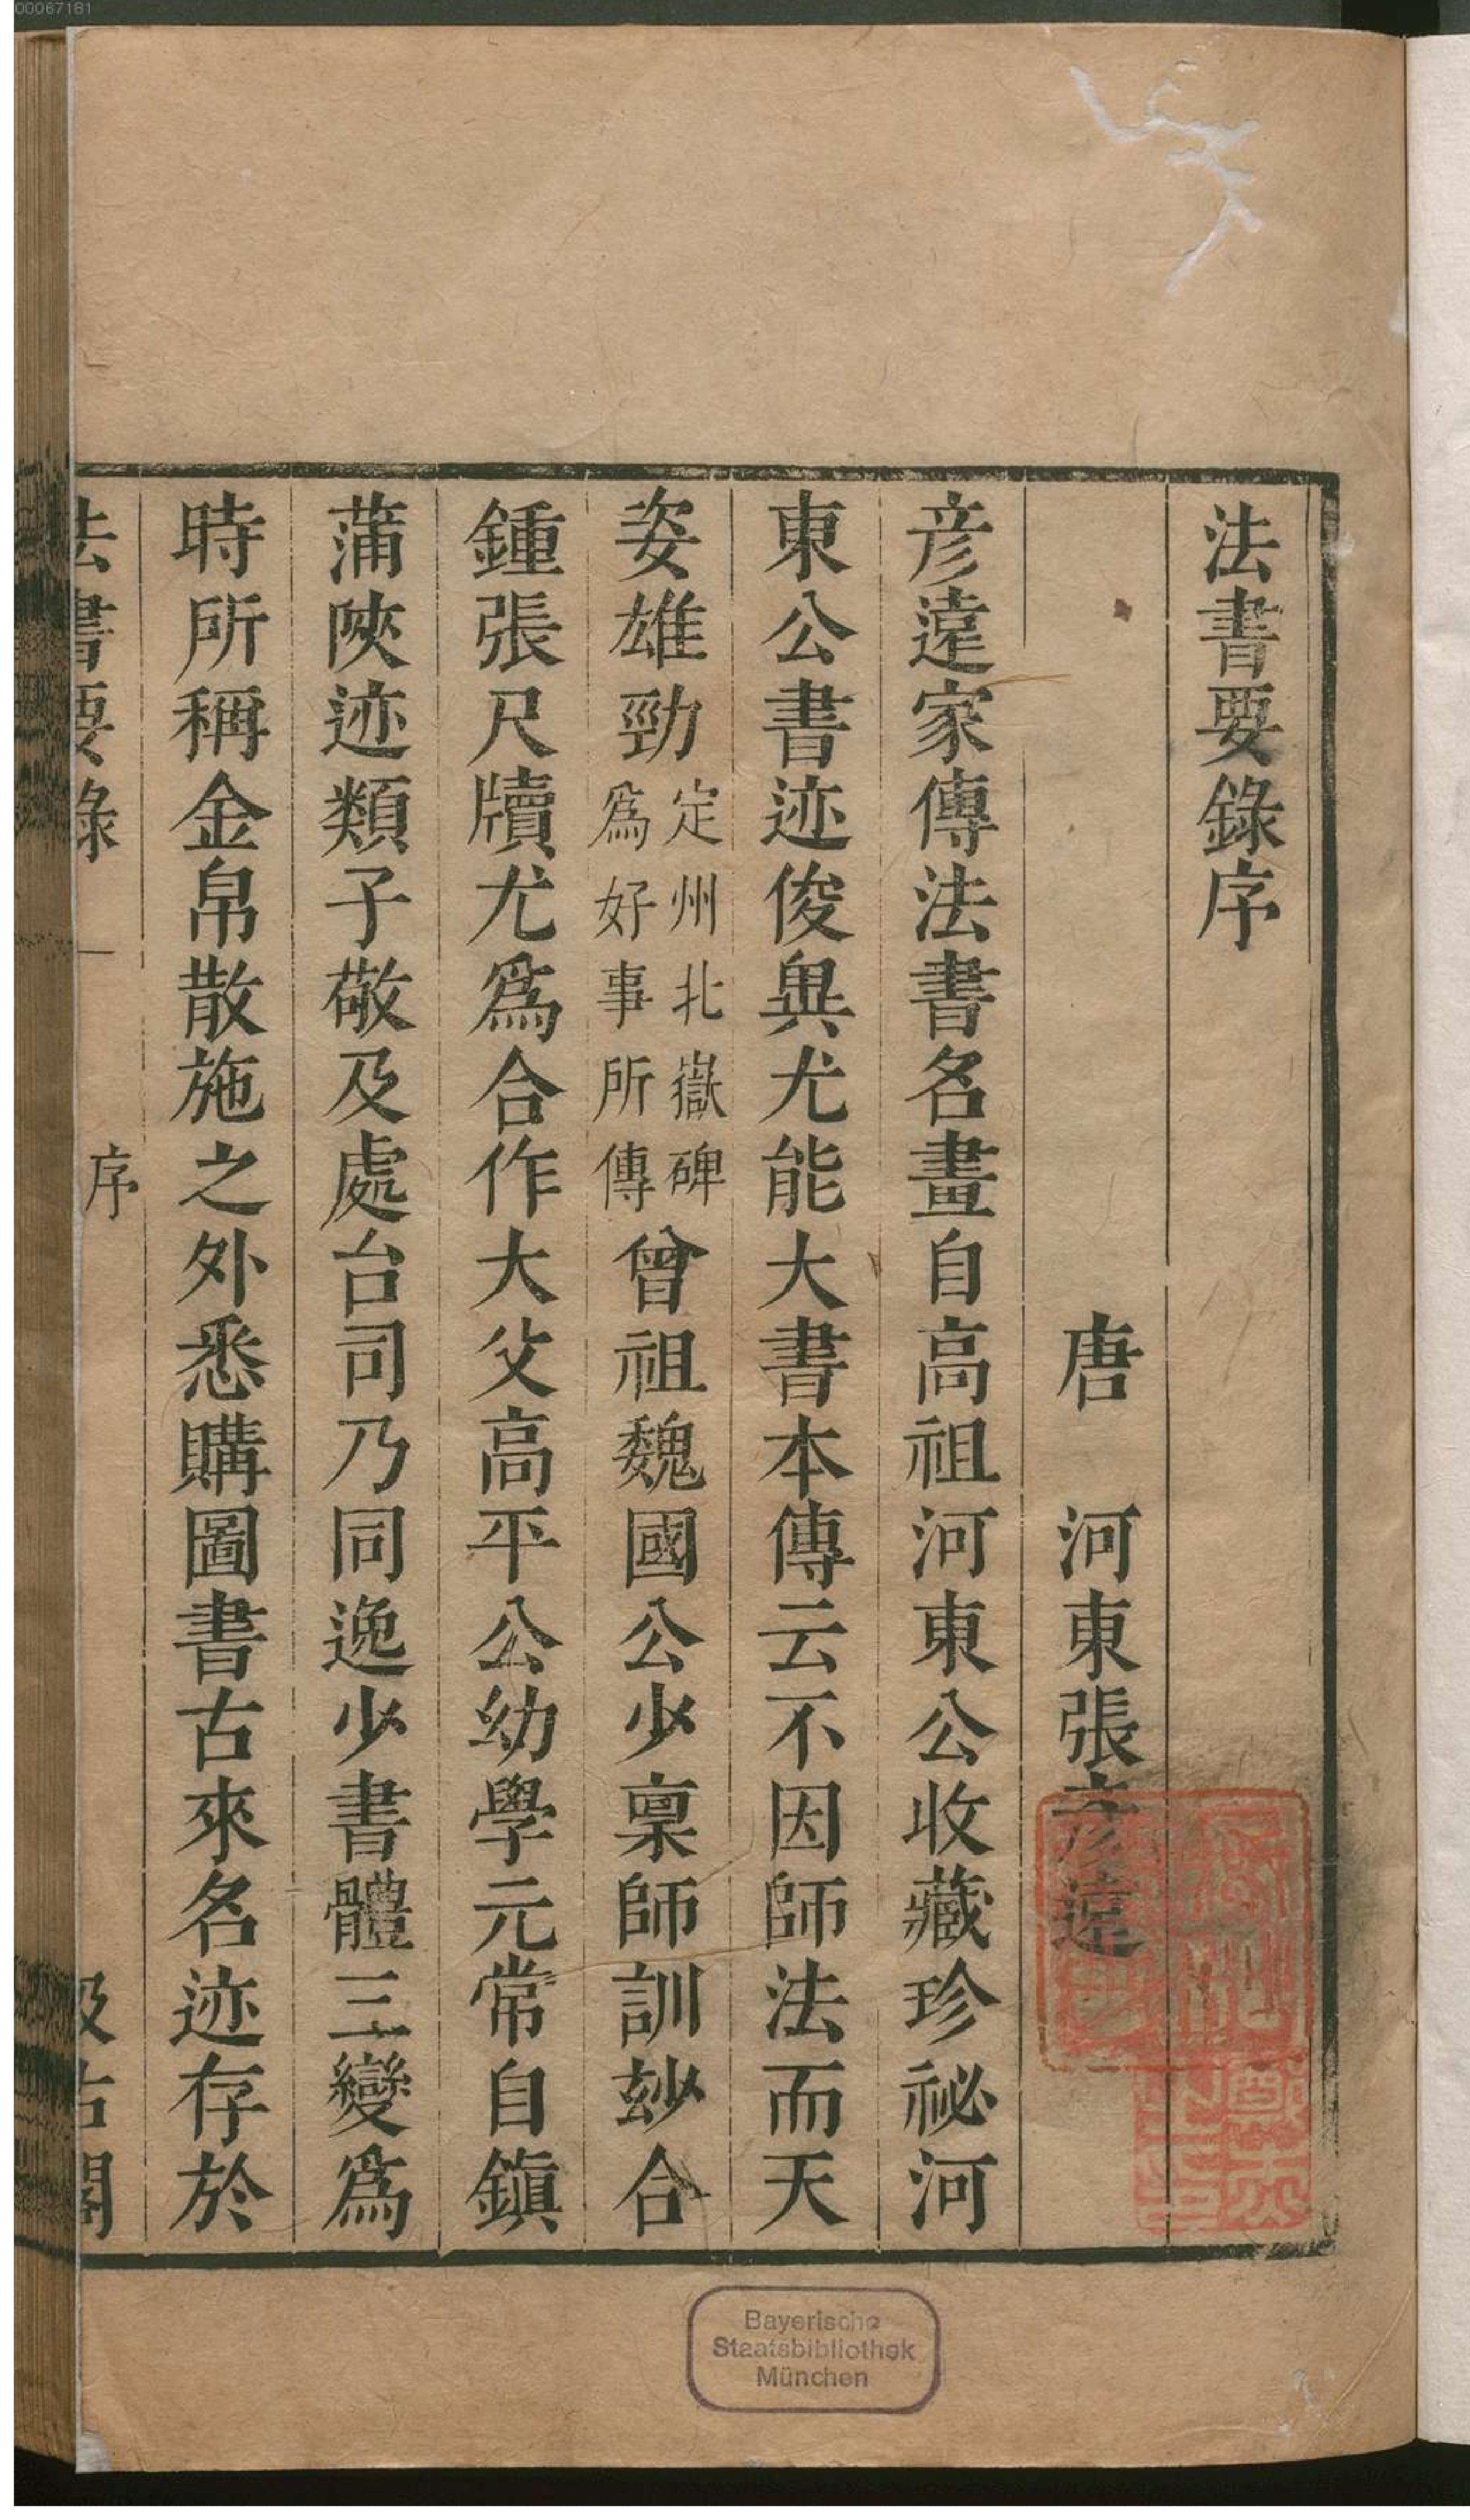 00067181
法書要錄序
唐　河東張彥遠
彥遠家傳法書名畫自高祖河東公收藏珍祕河
東公書迹俊異尤能大書本傳云不因師法而天
姿雄勁定州北嶽碑爲好事所傳曾祖魏國公少稟師訓玅合
鍾張尺牘尤爲合作大父高平公幼學元常自鎭
蒲陜迹類子敬及處台司乃同逸少書體三變爲
時所稱金帛散施之外悉購圖書古來名迹存於
法書要錄　序　汲古閣
Bayerische
Staatsbibliothek
München